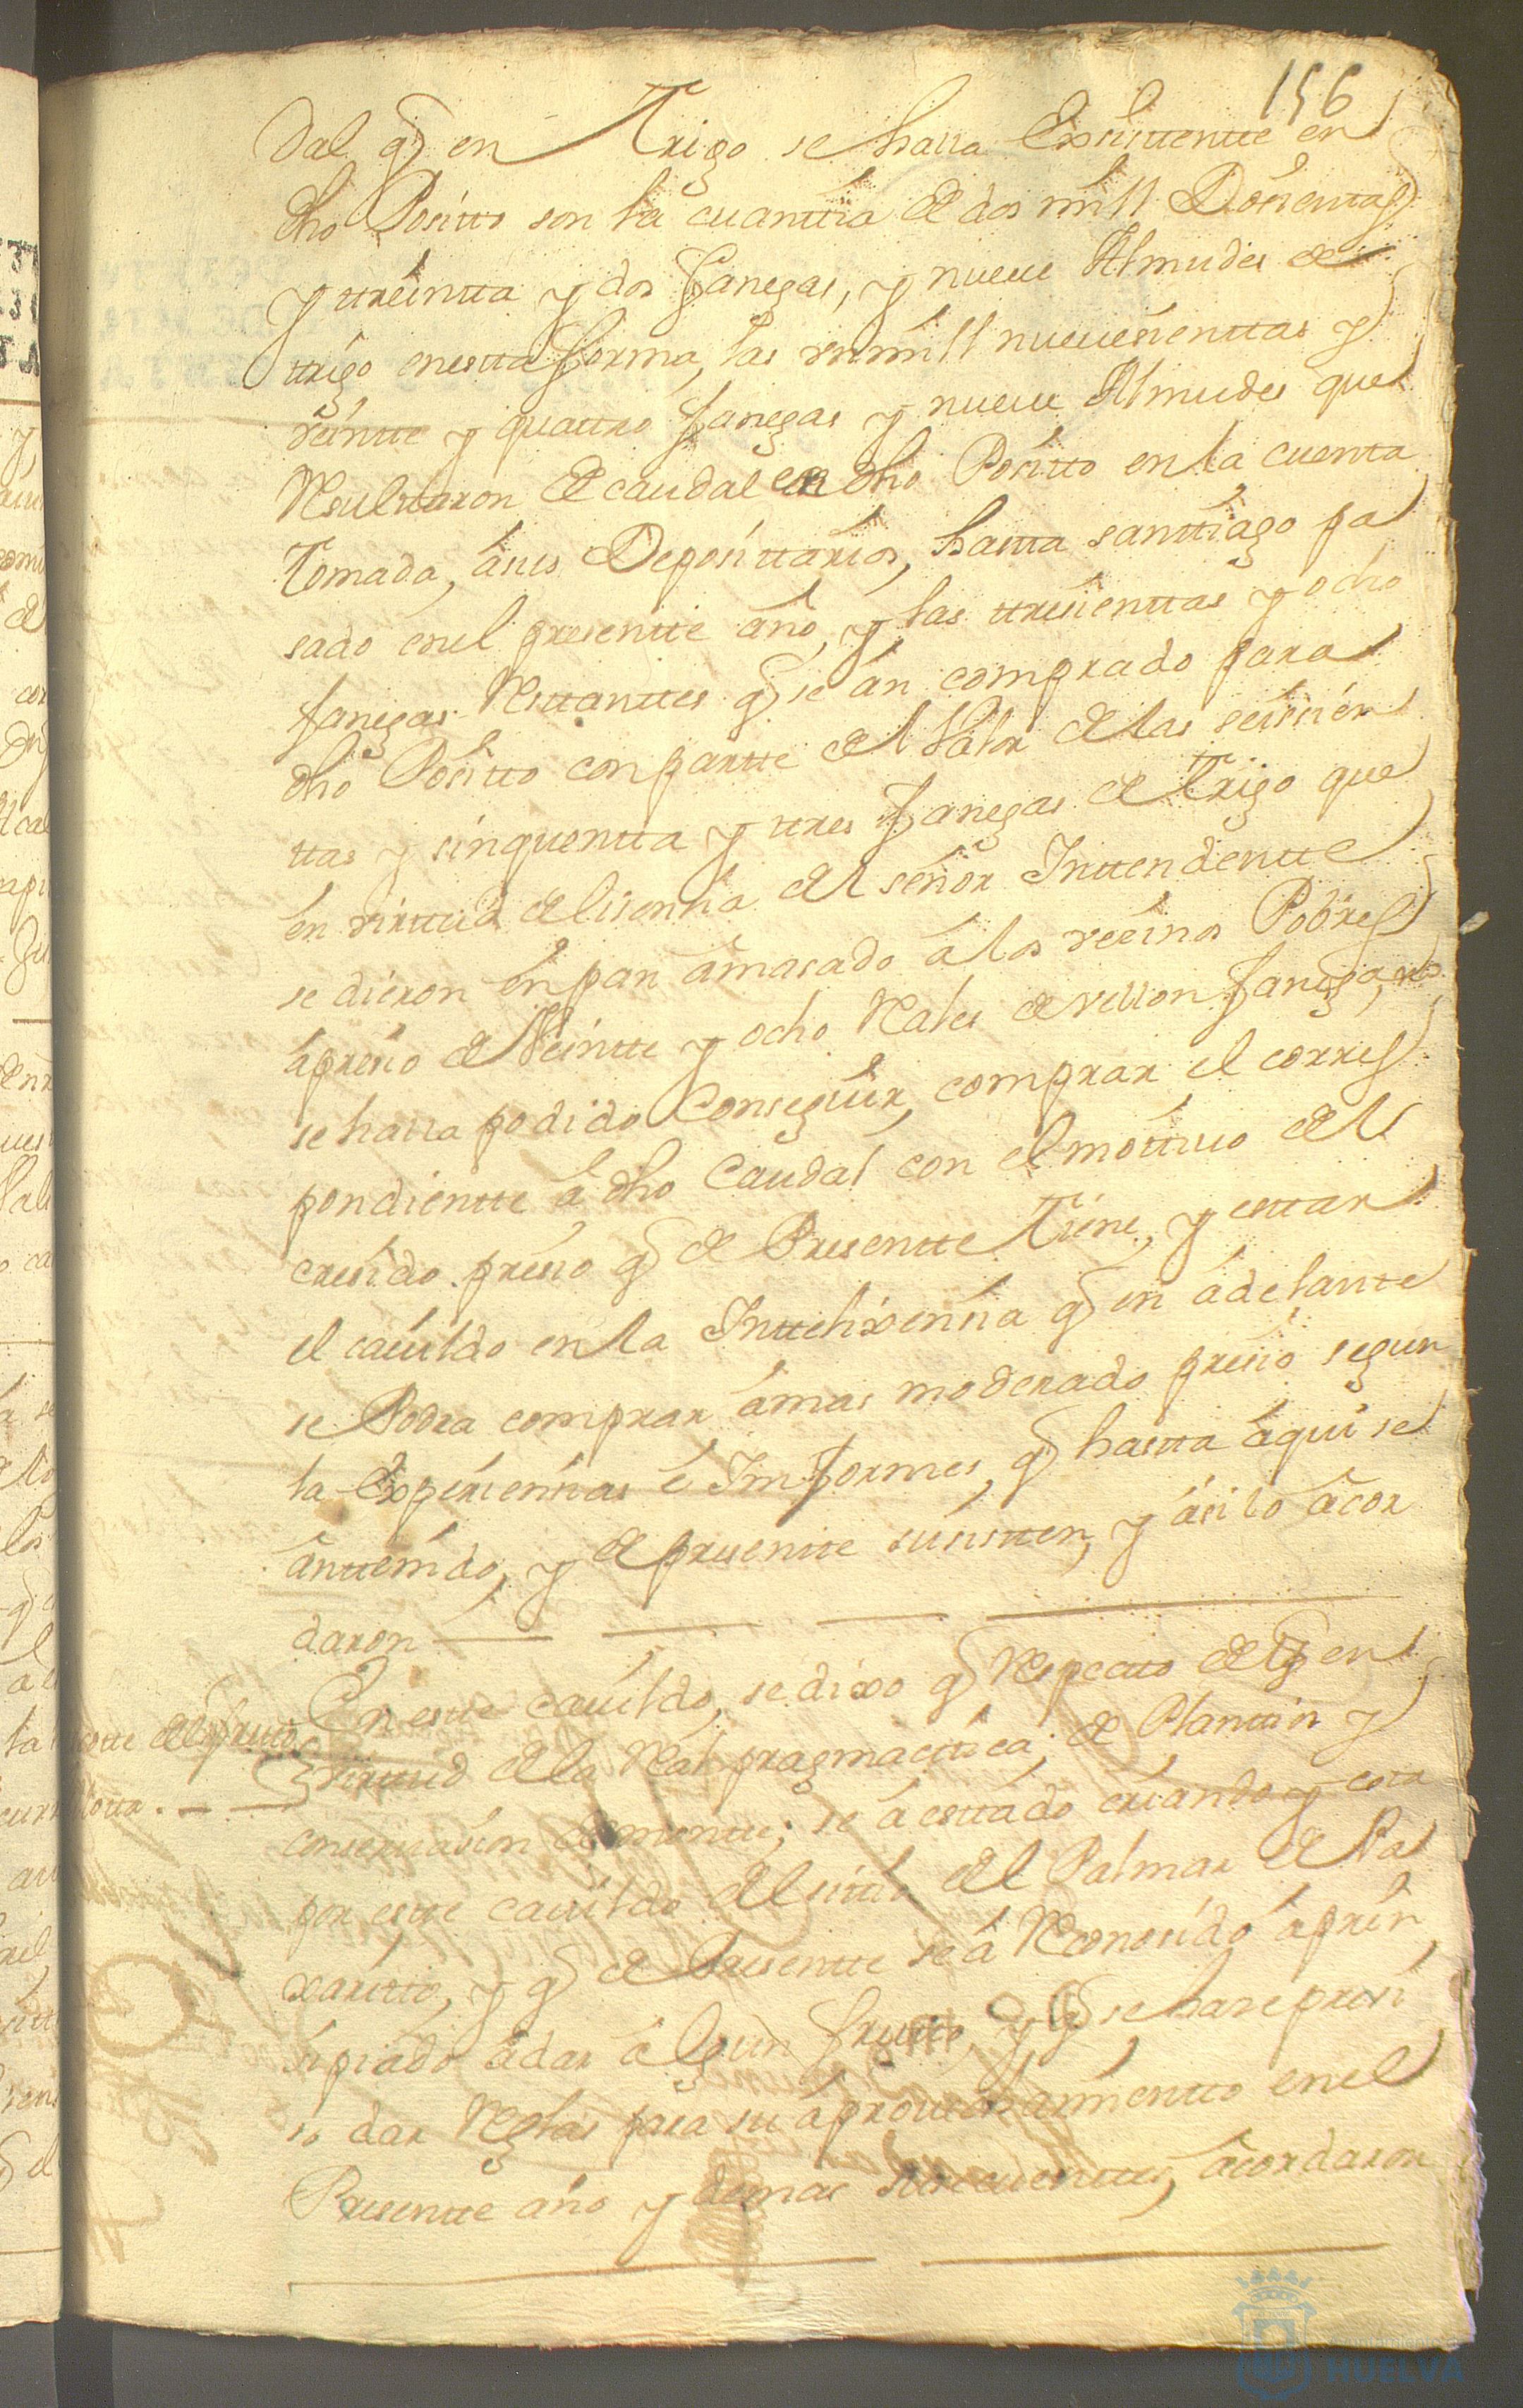 156
dal q̃ en Trigo se halla Exsistentte en
dho Positto son la cuanttia de dos mill Dosientas
y ttreintta y dos fanegas, y nueue Almudes de
ttrigo en estta forma, las un mill nueuesienttas y
veintte y quattro fanegas y nueue Almudes que
Resulttaron de caudal en dho Positto en la cuenta
Tomada, á sus Deposittarios, hastta santtiago pa
sado en el presentte año, y las ttresienttas y ocho
fanegas Resttanttes q̃ se án comprado para
dho Positto con partte del Valor de las seissien
ttas y sinquentta y ttres fanegas de Trigo que
en virttud de lisensia del señor Inttendentte
se dieron en pan amasado á los vecinos Pobres
á presio de Veintte y ocho Rales de vellon fanega, no
se halla podido Conseguir, comprar el corres
pondientte á dho Caudal con el mottiuo del
cresido presio q̃ de Presentte Tiene, y esttar
el cauildo en la Inttelixensia q̃ en ádelante
se Podra comprar á mas moderado presio segun
la Experiensias é Imformes, q̃ hastta áqui se
án ttenido, y de presentte susistten, y ási lo ácor
daron
En estte cauildo, se dixo q̃ Respecto de q̃ en
virttud de la Real pragmacttica, de Planttin y
conseruasion de montte; se á esttado criando y cota
por estte cauildo el sittio del Palmar de Pa
xaritto, y q̃ de Presentte se á Reconosido á prin
sipiado á dar álgun frutto, y q̃ se hase presi
so dar Reglas para su áprouechamientto en el
Presentte año y demas susecuenttes, ácordaron
HUELVA